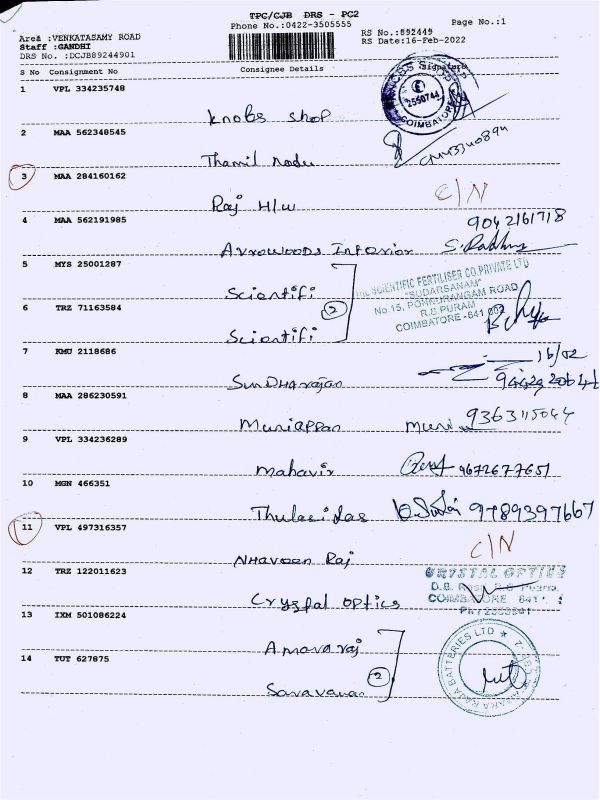 TPC/CJB DRS - PC2
Phone No.:0422-3505555
Page No.:1
Area :VENKATASAMY ROAD
RS No.:892449
Staff :GANDHI
RS Date:16-Feb-2022
DRS No. :DCJB89244901
S No Consignment No Consignee Details Signature
1 VPL 334235748
Knobs Shop
COIMBATORE
2 MAA 562348545
Thamil Nadu
3 MAA 284160162
Raj H/W C/N
4 MAA 562191985 9042161718
Arrowoods Interior
5 MYS 25001287
Scientifi
SCIENTIFIC FERTILISER CO.PRIVATE LTD
"SUDARSANAM"
No.15, PONNURANGAM ROAD
R.S PURAM
COIMBATORE -641 002
2
6 TRZ 71163584
Scientifi
7 KMU 2118686 16/02
SunDHarajan
8 MAA 286230591
Muniappan Muni 9363115044
9 VPL 334236289
Mahavir 9672677651
10 MGN 466351
Thulasidas 9789397667
11 VPL 497316357
NHaveen Raj C/N
12 TRZ 122011623
Cryspal optics
CRYSTAL OPTICS
COIMBATORE
13 IXM 501086224
Amararaj
2
14 TUT 627875
Saravanan
RAJA BATTERIES LTD